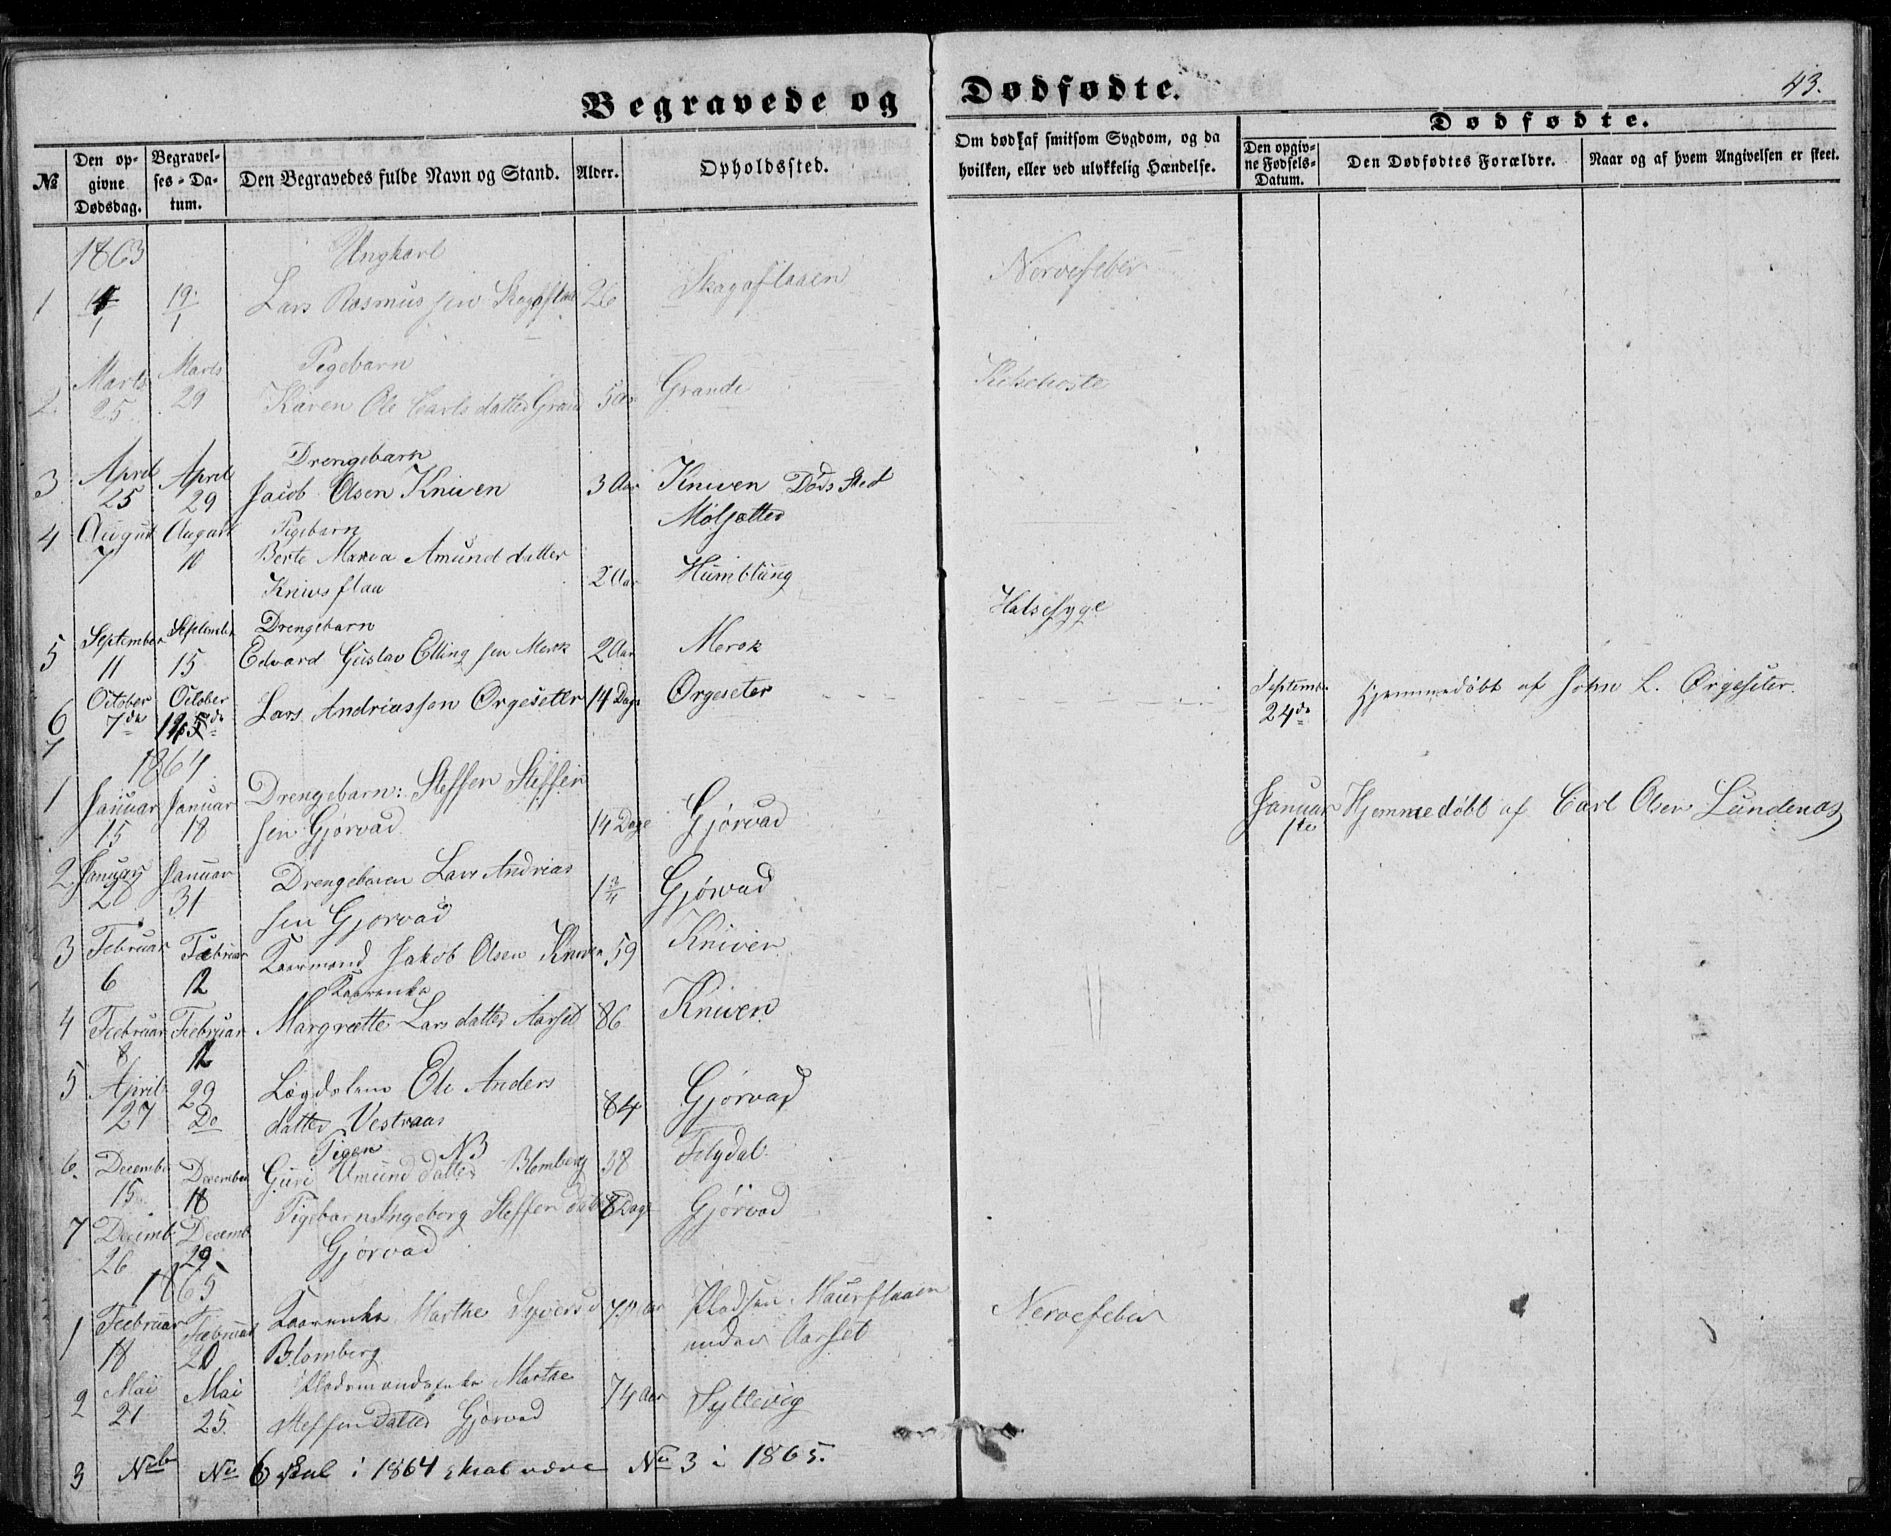 Begravede og Dødfødte.
43.
№
Den opgivne Dødsdag.
Begravelses-Datum.
Den Begravedes fulde Navn og Stand.
Alder.
Opholdssted.
Om død af smitsom Sygdom, og da hvilken, eller ved ulykkelig Hændelse.
Dødfødte.
Den opgivne Fødsels-Datum.
Den Dødfødtes Forældre.
Naar og af hvem Angivelsen er skeet.
1863
Ungkarl
1 19/1 Lars Rasmussen 26 Skagaflaaen Nervefeber
Pigebarn
2. Marts 25 Marts 29 Karen Ole Carls datter Grand 5 Aar Grande Kighoste
Drengebarn
3 April 25 April 29 Jacob Olsen Kniven 3 Aar Kniven Døds Sted
4 August 7 August 10 Pigebarn
Berte Maria Amund datter
Knivsflaa 2 Aar Humblung
Drengebarn Halssyge
5 September 11 September 15 Edvard Gustav Elling sen Merok 2 Aar Merok
6 October 7de October Lars Andriassen Ørgesetter 14 Dage Ørgeseter Septemb. 24de Hjemmedøbt af John L. Ørgeseter.
7
1864
1 Januar 15 Januar 18 Drengebarn: Steffen Steffen
sen Gjørvad 14 Dage Gjørvad Januar 1te Hjemmedøbt af Carl Olsen Lundenæs
2 Januar Januar 31 Drengebaren Lars Andrias
sen Gjørvad 1 3/4 Gjørvad
3 Februar 6 Februar 12 Kaarmand Jakob Olsen Kniven 59 Kniven
Kaarenke
4 Februar 8 Februar 12 Margrette Lars datter Aarset 86 Kniven
5 April 27 29 Do Lægdslem Ele Anders
datter Vestraas 84 Gjørvad
Pigen NB
6. Decembe 15 December 18 Guri Amund datter Blomberg 38
7 Decemb. 26 Decemb. 29 Pigebarn Ingeborg Steffen dat 8 Dage Gjørvad
Gjørvad
1865
1 Februar 18 Februar 20 Kaarenke Marthe Syvers d Aar Pladsen
Blomberg under Aarset Nervefeber
2 Mai 21 Mai 25. Pladsmandsenke Marthe
Steffen datter Gjørvad 74 Aar Syltevig
3 No 6 i 1864 skal være No 3 i 1865.